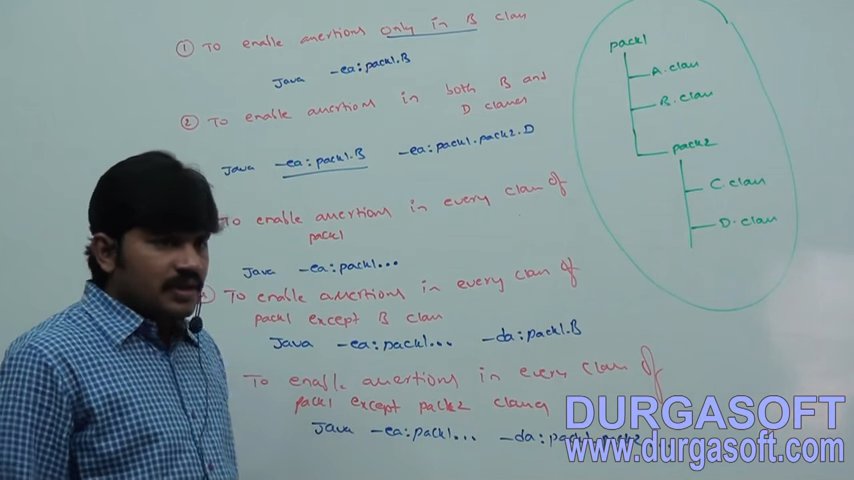 ① To enable assertions only in B class
Java -ea:pack1.B
② To enable assertions in both B and
D classes
Java -ea:pack1.B -ea:pack1.pack2.D
To enable assertions in every class of
pack1
Java -ea:pack1...
To enable assertions in every class of
pack1 except B class
Java -ea:pack1... -da:pack1.B
To enable assertions in every class of
pack1 except pack2 classes
Java -ea:pack1... -da:
pack1
A.class
B.class
pack2
C.class
D.class
DURGASOFT
www.durgasoft.com